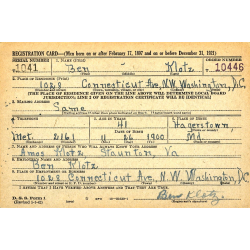 REGISTRATION CARD—(Men born on or after February 17, 1897 and on or before December 31, 1921)
SERIAL NUMBER 1. NAME (Print) ORDER NUMBER
1041 Ben Klotz 10446
2. PLACE OF RESIDENCE (Print)
1028 Connecticut Ave, N.W. Washington, D.C.
[THE PLACE OF RESIDENCE GIVEN ON THE LINE ABOVE WILL DETERMINE LOCAL BOARD
JURISDICTION; LINE 2 OF REGISTRATION CERTIFICATE WILL BE IDENTICAL]
3. MAILING ADDRESS
Same
4. TELEPHONE 5. AGE IN YEARS 6. PLACE OF BIRTH
41 Hagerstown,
DATE OF BIRTH
Met. 2161 11 26 1900 Md.
7. NAME AND ADDRESS OF PERSON WHO WILL ALWAYS KNOW YOUR ADDRESS
Amos Klotz Staunton, Va
8. EMPLOYER'S NAME AND ADDRESS
Ben Klotz
9. PLACE OF EMPLOYMENT OR BUSINESS
1028 Connecticut Ave, N.W. Washington, D.C.
I AFFIRM THAT I HAVE VERIFIED ABOVE ANSWERS AND THAT THEY ARE TRUE.
D. S. S. Form 1
Ben Klotz